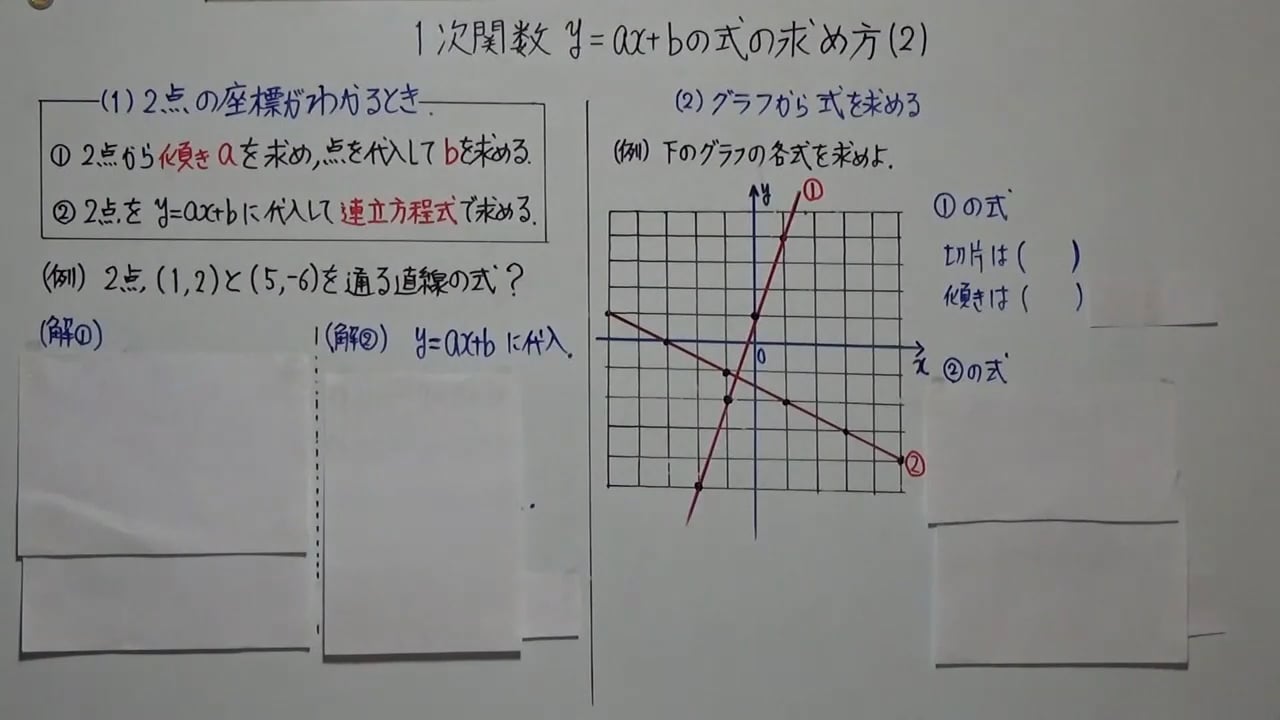 1次関数 y=ax+bの式の求め方(2)
(1) 2点の座標がわかるとき.
① 2点から傾きaを求め,点を代入してbを求める.
② 2点を y=ax+bに代入して連立方程式で求める.
(例) 2点,(1,2)と(5,-6)を通る直線の式?
(解①)
(解②) y=ax+b に代入.
(2) グラフから式を求める
(例) 下のグラフの各式を求めよ.
y
①
0
x
②
①の式
切片は( )
傾きは( )
②の式